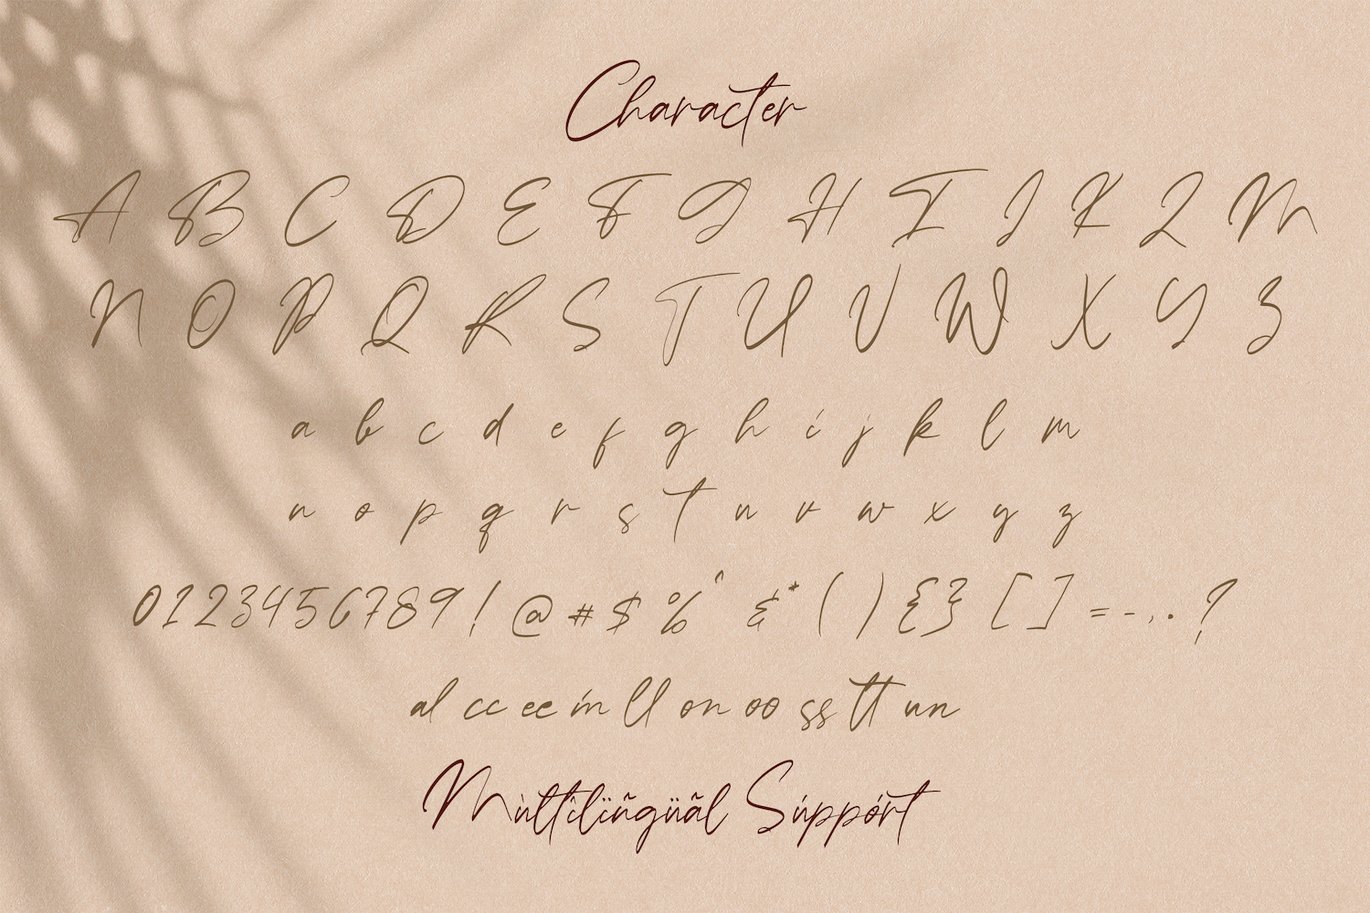 Character
A B C D E F G H I J K L M
N O P Q R S T U V W X Y Z
a b c d e f g h i j k l m
n o p q r s t u v w x y z
0123456789! @ # $ % ^ & * ( ) { } [ ] = - , . ?
al cc ee in ll on oo ss tt un
Mùltîlïñgüãl Súppórt